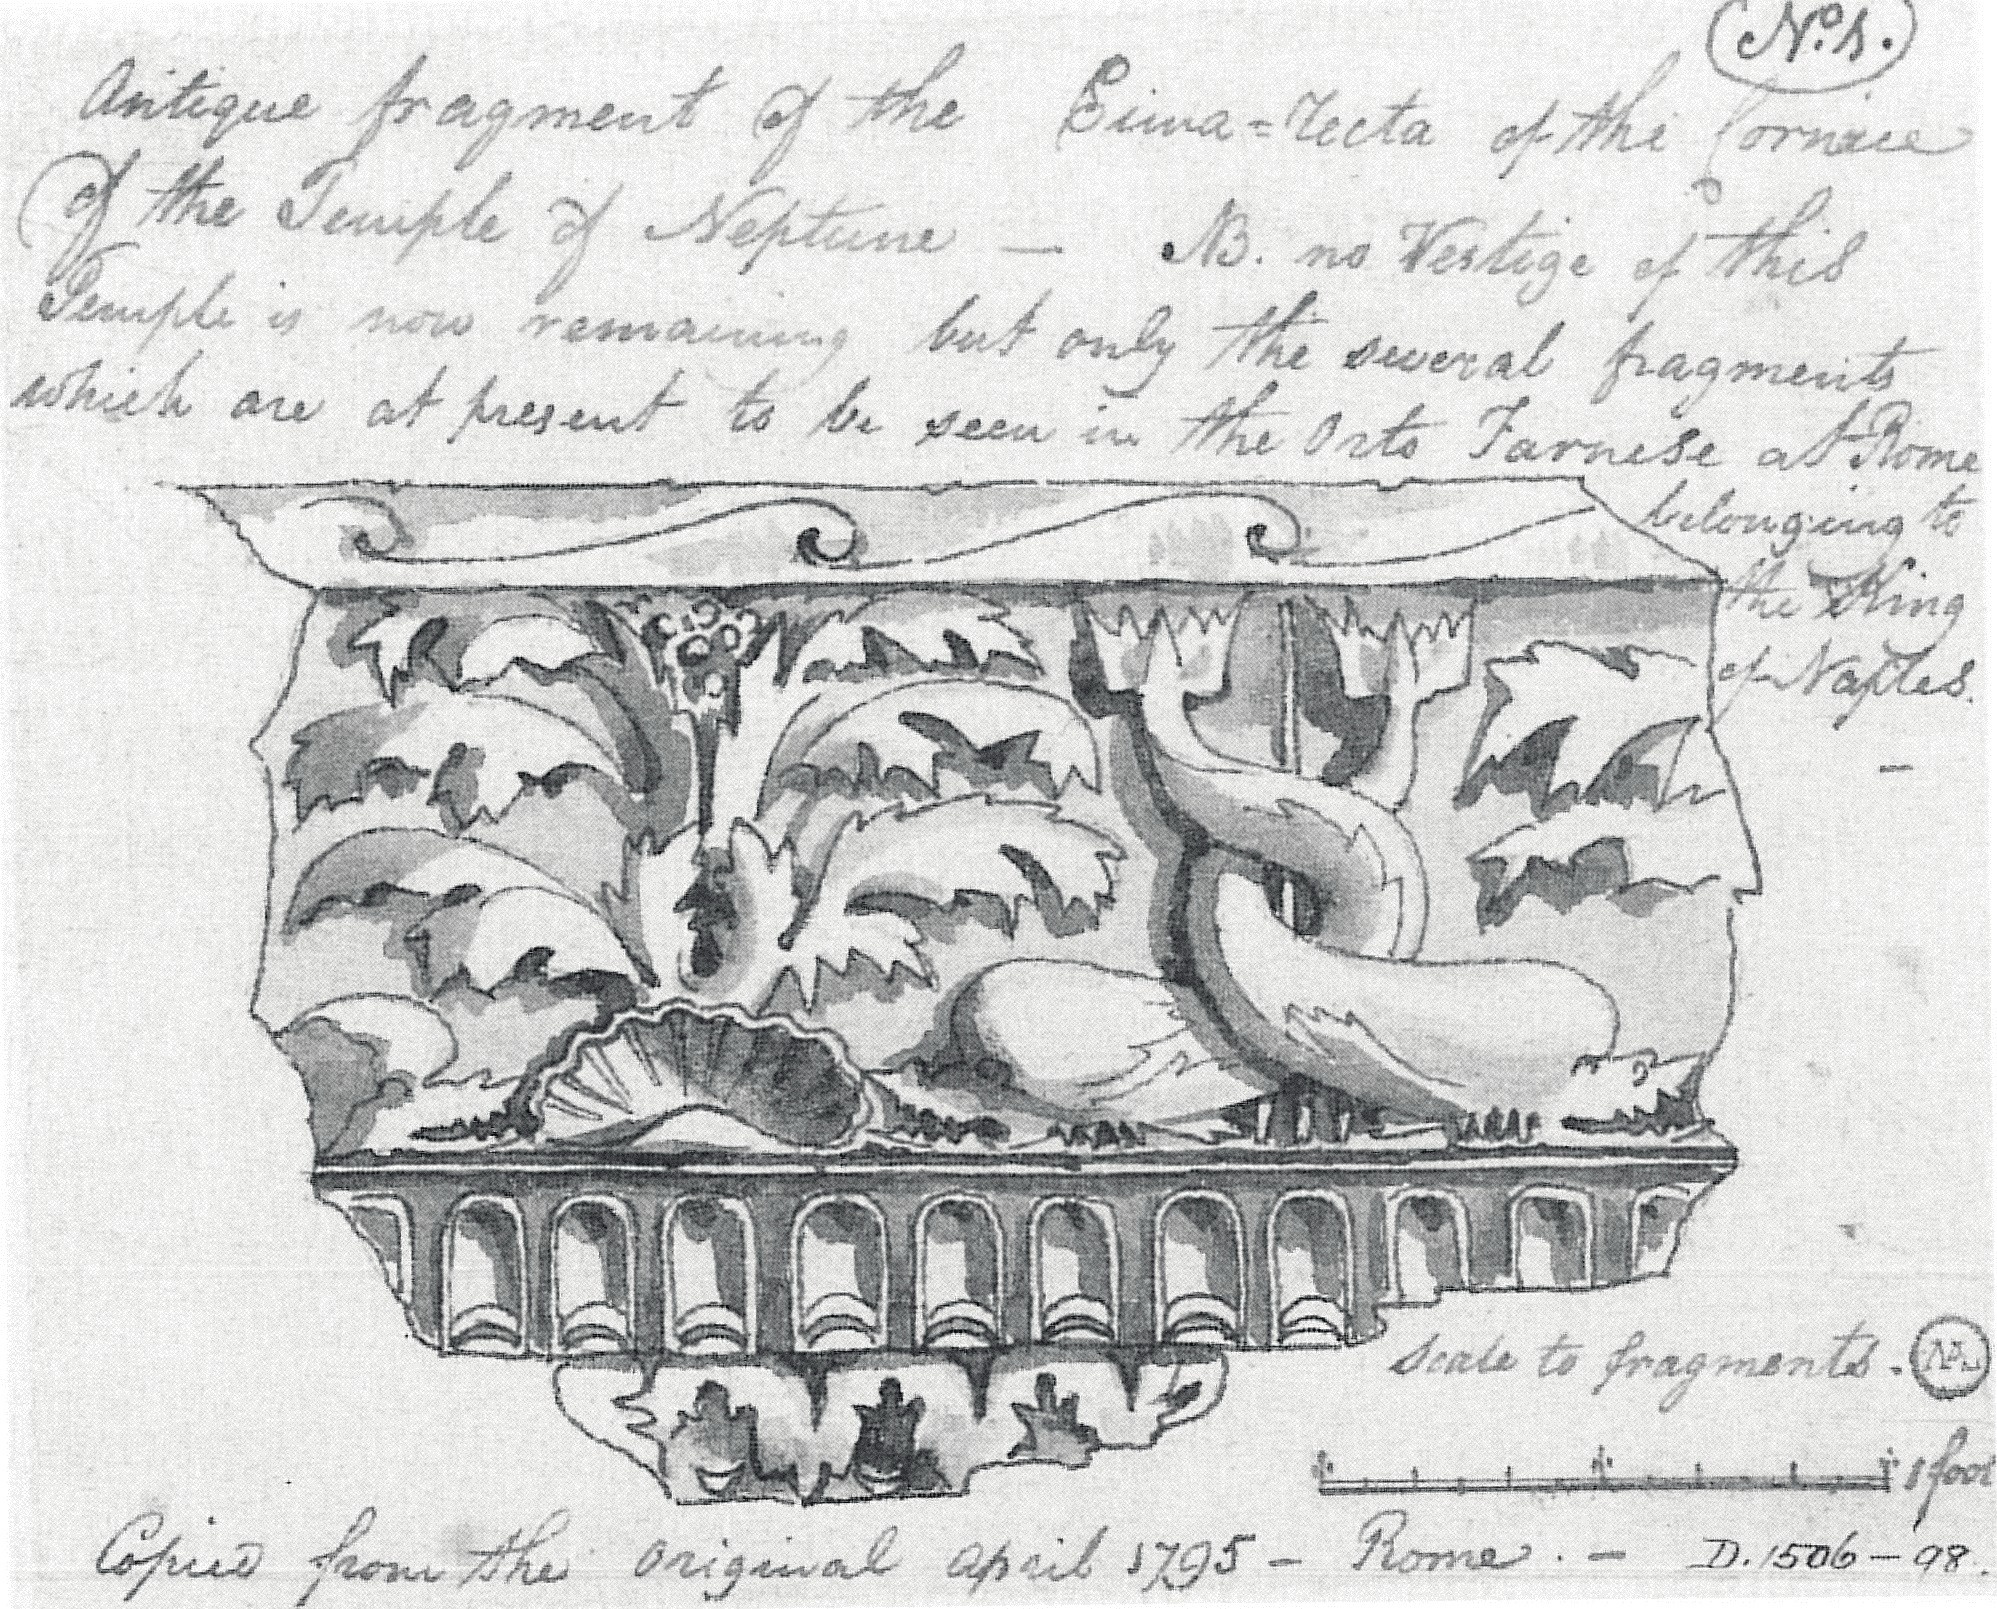 No. 1.
Antique fragment of the Cima=recta of the Cornice
of the Temple of Neptune — NB. no Vestige of this
Temple is now remaining but only the several fragments
which are at present to be seen in the Orto Farnese at Rome
belonging to
the King
of Naples.
—
Scale to fragments.
1 foot
Copied from the original april 1795 — Rome. — D.1506-98.